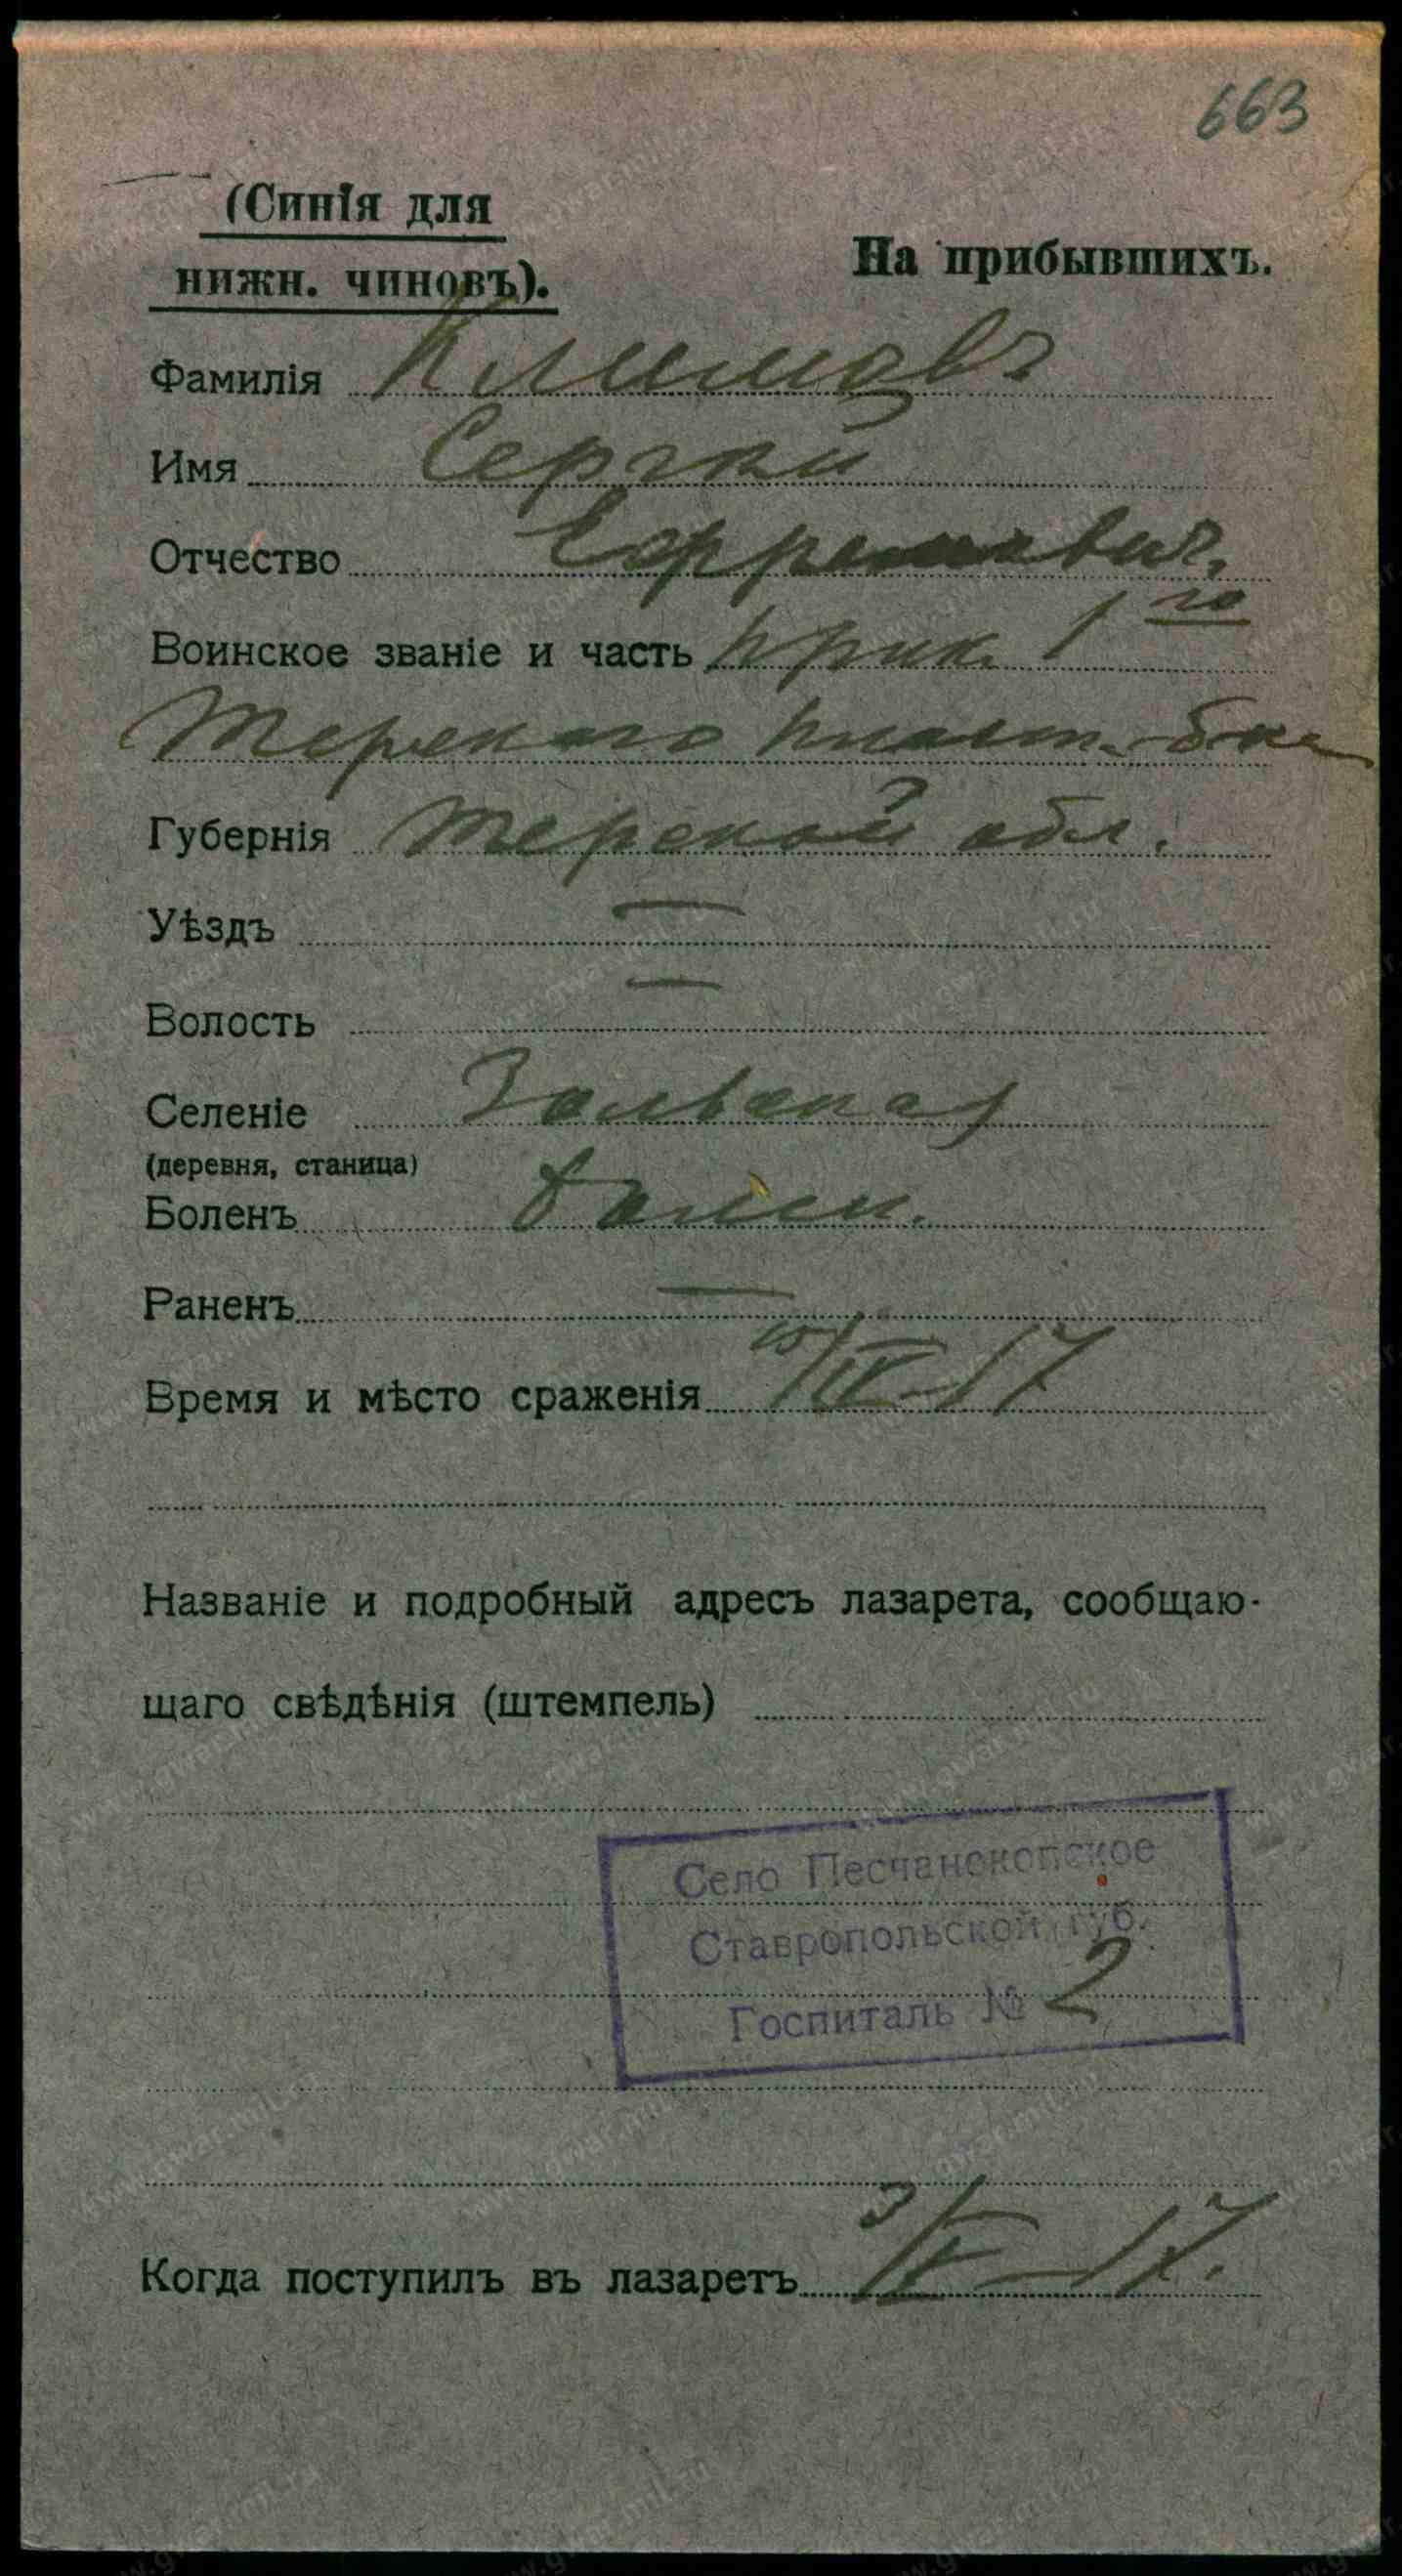 663
(Синія для
нижн. чиновъ).
На прибывшихъ.
Фамилія Климовъ
Имя Сергѣй
Отчество Ефремович.
Воинское званіе и часть прик. 1го
Терского пласт. б-на
Губернія Терской обл.
Уѣздъ —
Волость —
Селеніе Зольская
(деревня, станица)
Боленъ болен.
Раненъ —
Время и мѣсто сраженія /IX-17
Названіе и подробный адресъ лазарета, сообщаю-
щаго свѣдѣнія (штемпель)
Село Песчанокопское
Ставропольской губ.
Госпиталь № 2
Когда поступилъ въ лазаретъ 3/X-17.